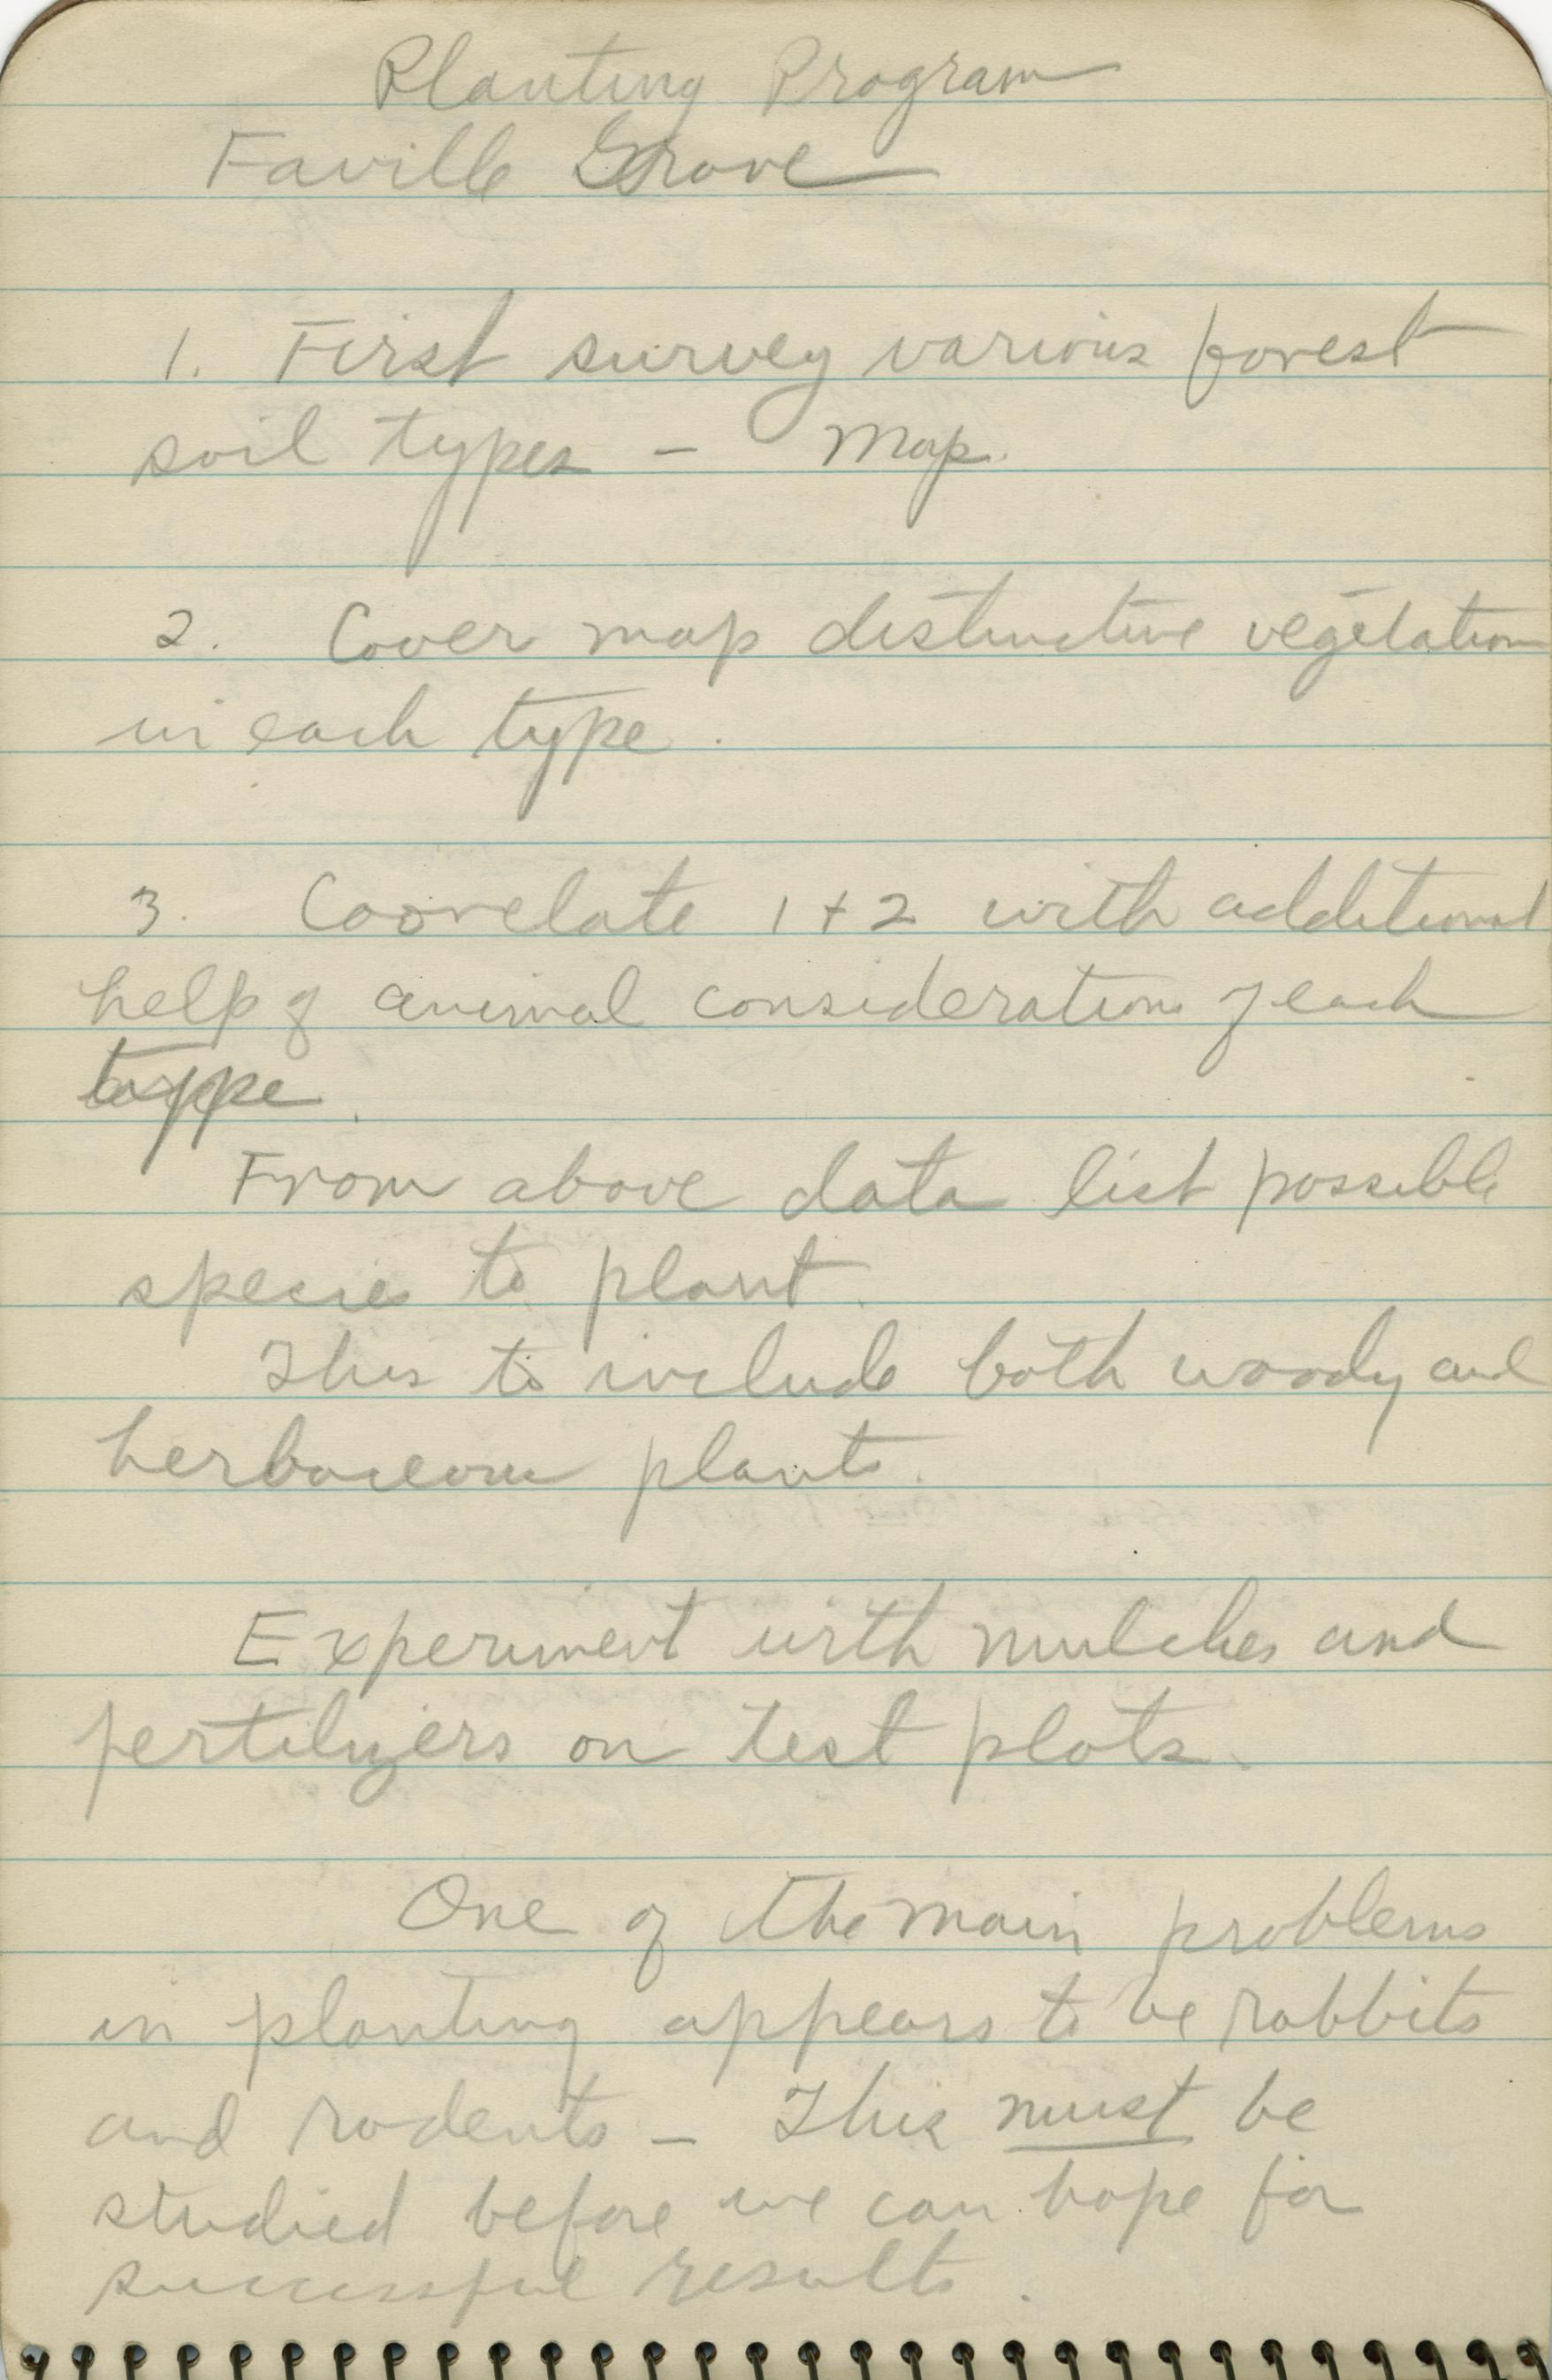 Planting Program
Faville Grove
1. First survey various forest
soil types - Map.
2. Cover map distinctive vegetation
in each type.
3. Coorelate 1 + 2 with additional
help of animal considerations of each
type.
From above data list possible
species to plant.
This to include both woody and
herbaceous plants.
Experiment with mulches and
fertilizers on test plots.
One of the main problems
in planting appears to be rabbits
and rodents - This must be
studied before we can hope for
successful results.